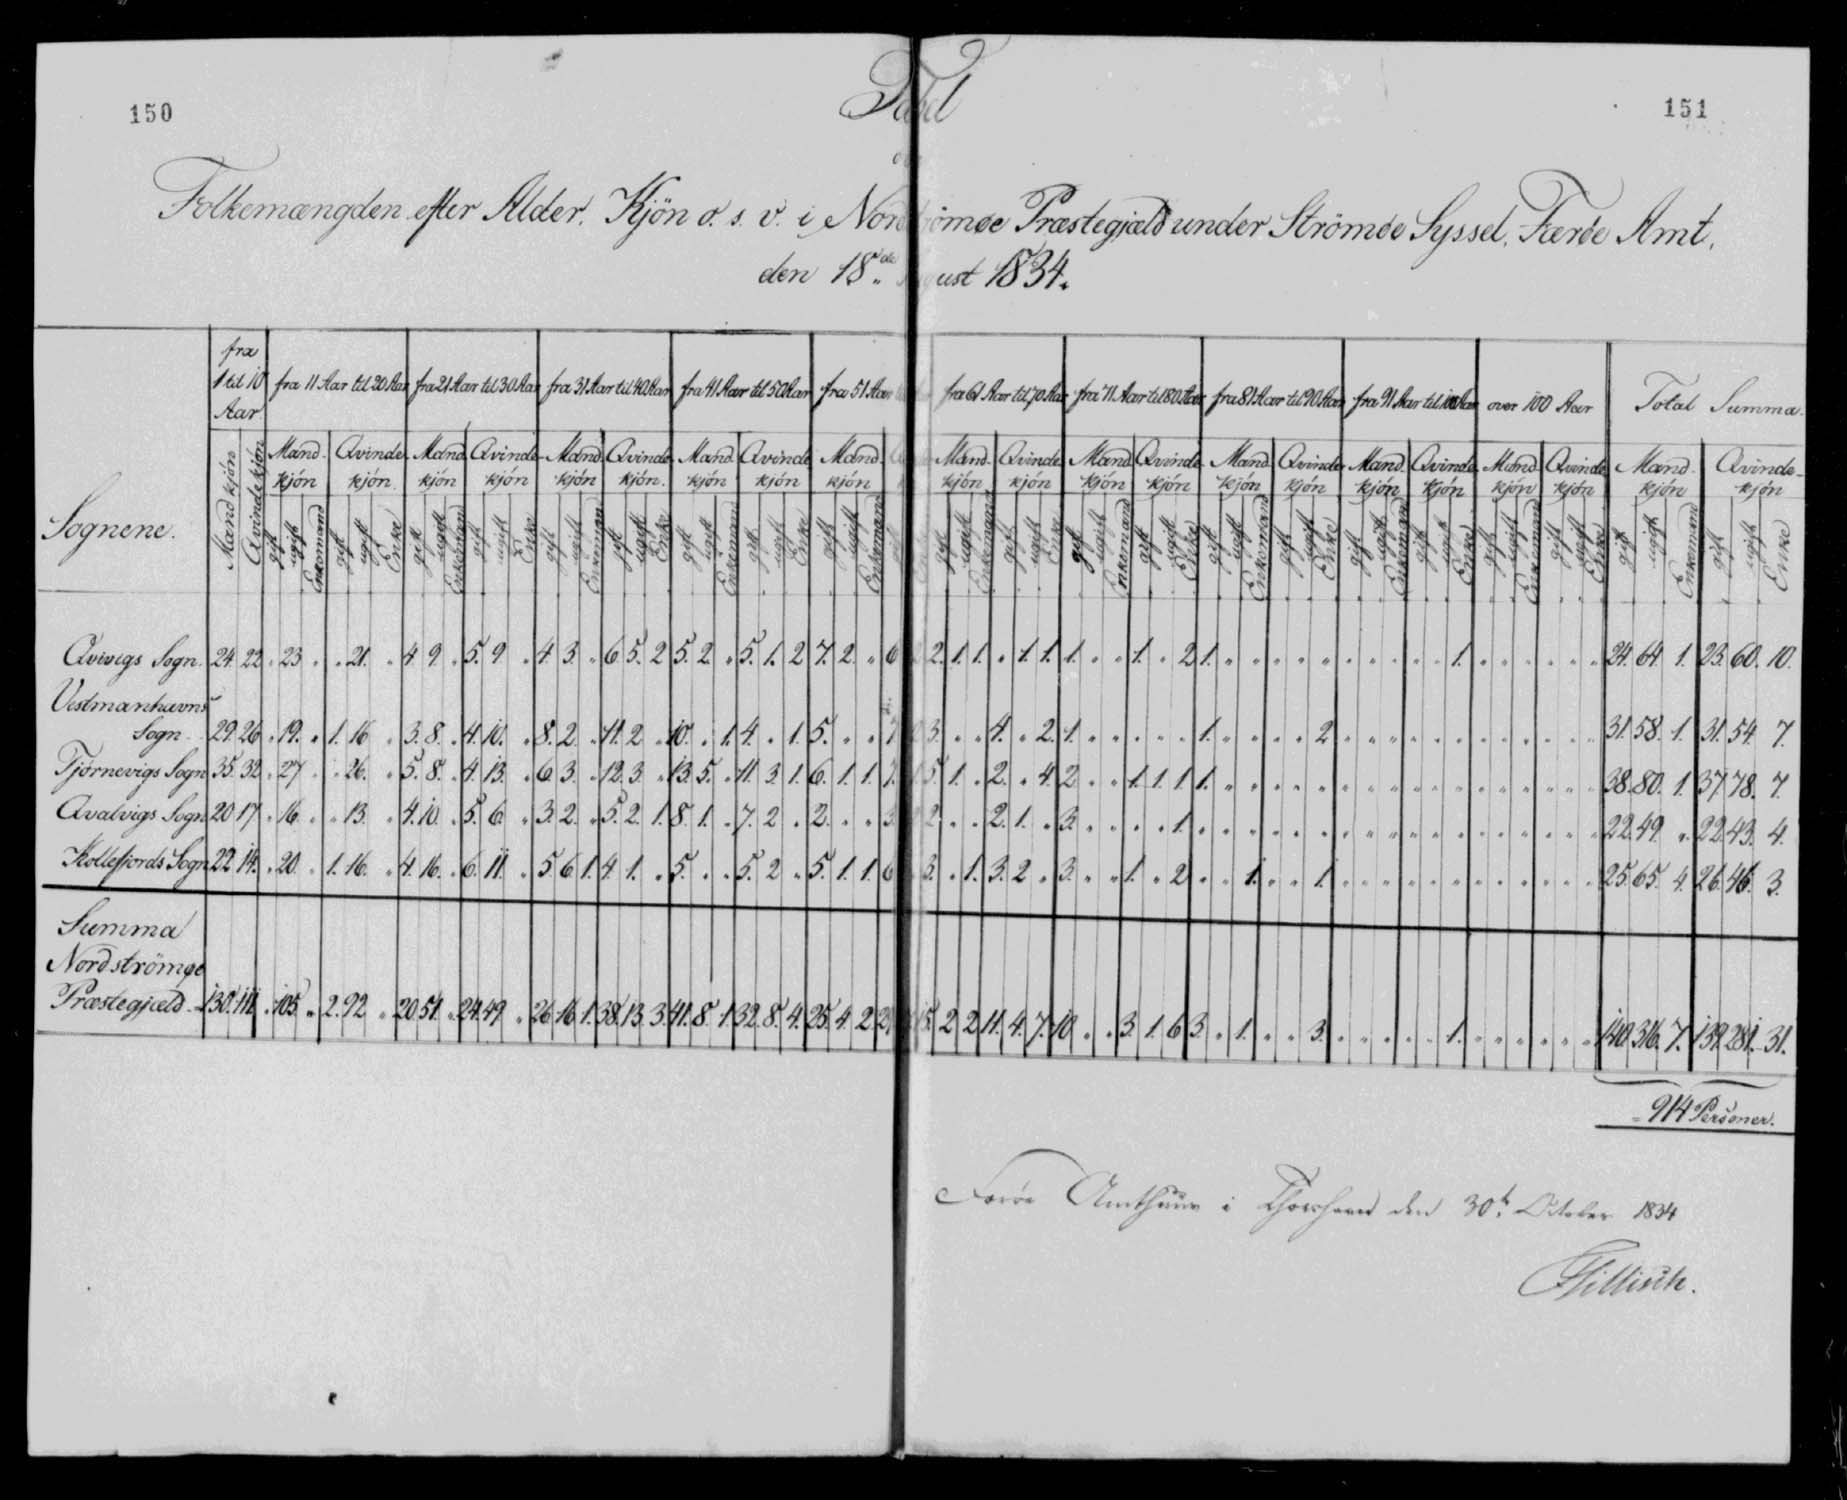 150
151
Tabel
Folkemængden efter Alder, Kjön o. s. v. i Nordströmøe Præstegjæld under Strömøe Syssel, Færöe Amt,
den 18de August 1834.
fra 1 til 10 Aar
fra 11 Aar til 20 Aar fra 21 Aar til 30 Aar fra 31 Aar til 40 Aar fra 41 Aar til 50 Aar fra 51 Aar fra 61 Aar til 70 Aar fra 71 Aar til 80 Aar fra 81 Aar til 90 Aar fra 91 Aar til 100 Aar over 100 Aar Total Summa.
Sognene.
Mandkjön Qvindekjön Mandkjön Qvindekjön Mandkjön Qvindekjön Mandkjön Qvindekjön Mandkjön Qvindekjön Mandkjön Mandkjön Qvindekjön Mandkjön Qvindekjön Mandkjön Qvindekjön Mandkjön Qvindekjön Mandkjön Qvindekjön Mandkjön Qvindekjön
gift ugift Enkemand gift ugift Enke gift ugift Enkemand gift ugift Enke gift ugift Enkemand gift ugift Enke gift ugift Enkemand gift ugift Enke gift ugift Enkemand gift ugift Enkemand gift ugift Enke gift ugift Enkemand gift ugift Enke gift ugift Enkemand gift ugift Enke gift ugift Enkemand gift ugift Enke gift ugift Enkemand gift ugift Enke gift ugift Enkemand gift ugift Enke
Qvivigs Sogn. 24. 22 " 23 " " 21. " 4 9 " 5. 9 " 4 3. " 6 5. 2 5. 2. " 5. 1. 2 7. 2. " 6 2. 1. 1. " 1. 1. 1. " " 1. " 2 1. " " " " " " " " " " 1. " " " " " " 24. 64. 1. 23. 60. 10.
Vestmanhavns
Sogn. 29. 26 " 19. " 1. 16 " 3. 8. " 4. 10. " 8. 2. " 11. 2 " 10. " 1. 4. " 1. 5. " " 3. " " 4. " 2. 1. " " " " " 1. " " " " 2 " " " " " " " " " " " " 31. 58. 1. 31. 54. 7.
Tjörnevigs Sogn 35. 32 " 27 " " 26. " 5. 8. " 4. 13. " 6 3. " 12. 3. " 13. 5. " 11. 3. 1. 6. 1. 1. 5. 1. " 2. " 4 2 " " 1. 1. 1 1. " " " " " " " " " " " " " " " " " 38. 80. 1. 37. 78. 7.
Qvalvigs Sogn 20 17 " 16. " " 13. " 4. 10. " 5. 6. " 3. 2. " 5. 2. 1. 8. 1. " 7. 2 " 2. " " 3. 2. " " 2. 1. " 3. " " " " 1. " " " " " " " " " " " " " " " " " " 22. 49. " 22. 43. 4.
Kollefjords Sogn 22 14. " 20. " 1. 16. " 4. 16. " 6. 11. " 5. 6 1. 4 1. " 5. " " 5. 2 " 5. 1. 1. 6 3. " 1. 3. 2 " 3. " " 1. " 2 " " 1. " " 1. " " " " " " " " " " " " 25. 65. 4. 26. 46. 3.
Summa
Nordströmøe
Præstegjæld 130. 111. " 105. " 2. 92 " 20 51. " 24. 49. " 26 16 1. 38. 13. 3. 41. 8. 1. 32. 8. 4. 25. 4. 2. 15. 2 2 11. 4. 7. 10 " " 3. 1. 6 3. " 1. " " 3. " " " " " 1. " " " " " " 140. 316. 7. 139. 281. 31.
= 914 Personer.
Færöe Amthuus i Thorshavn den 30te October 1834
FTillisch.